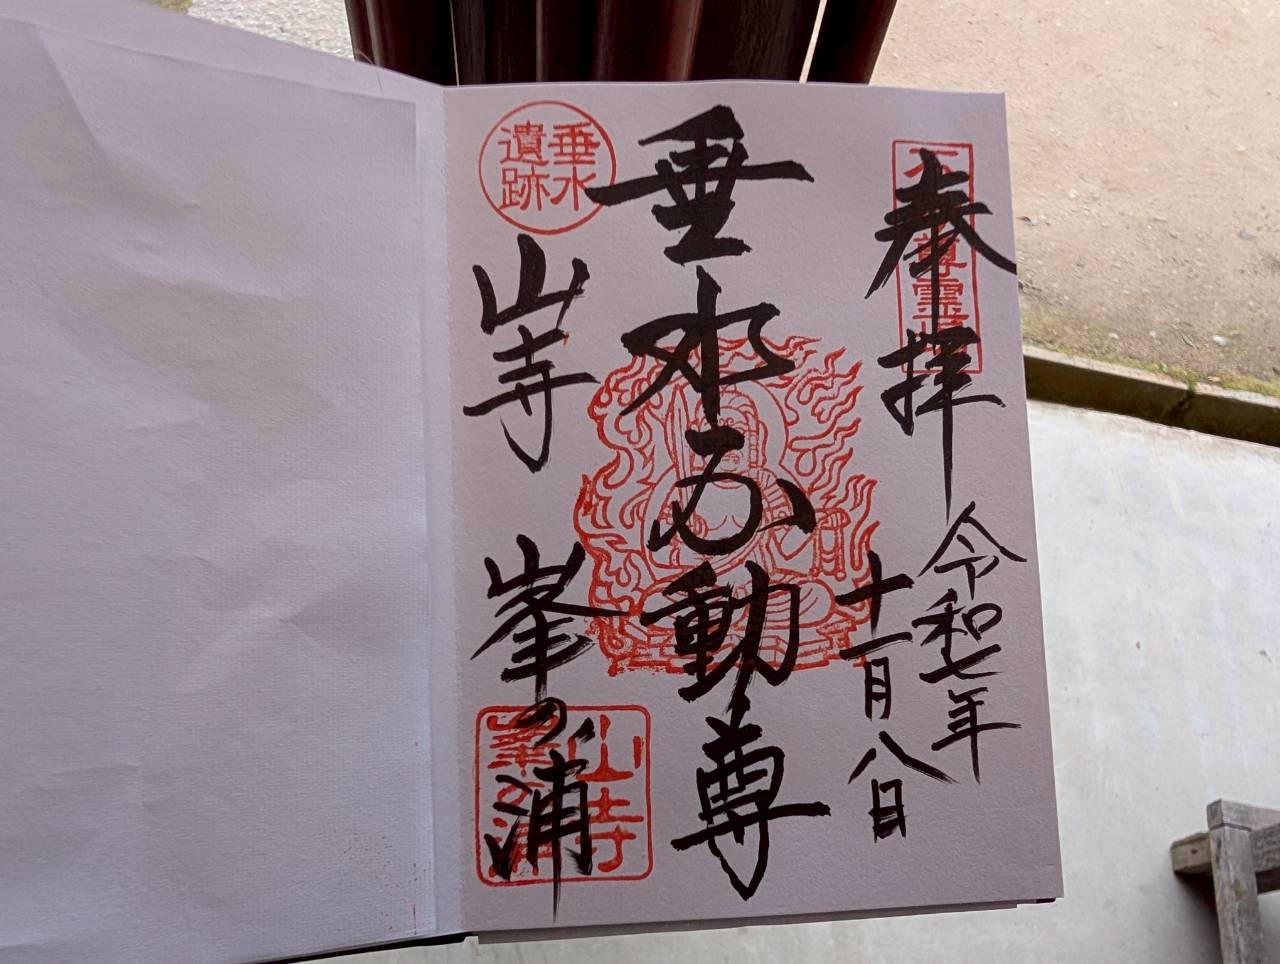 奉拝
令和七年
十一月八日
垂水不動尊
垂水
遺跡
山寺 峯の浦
山寺
峯の浦